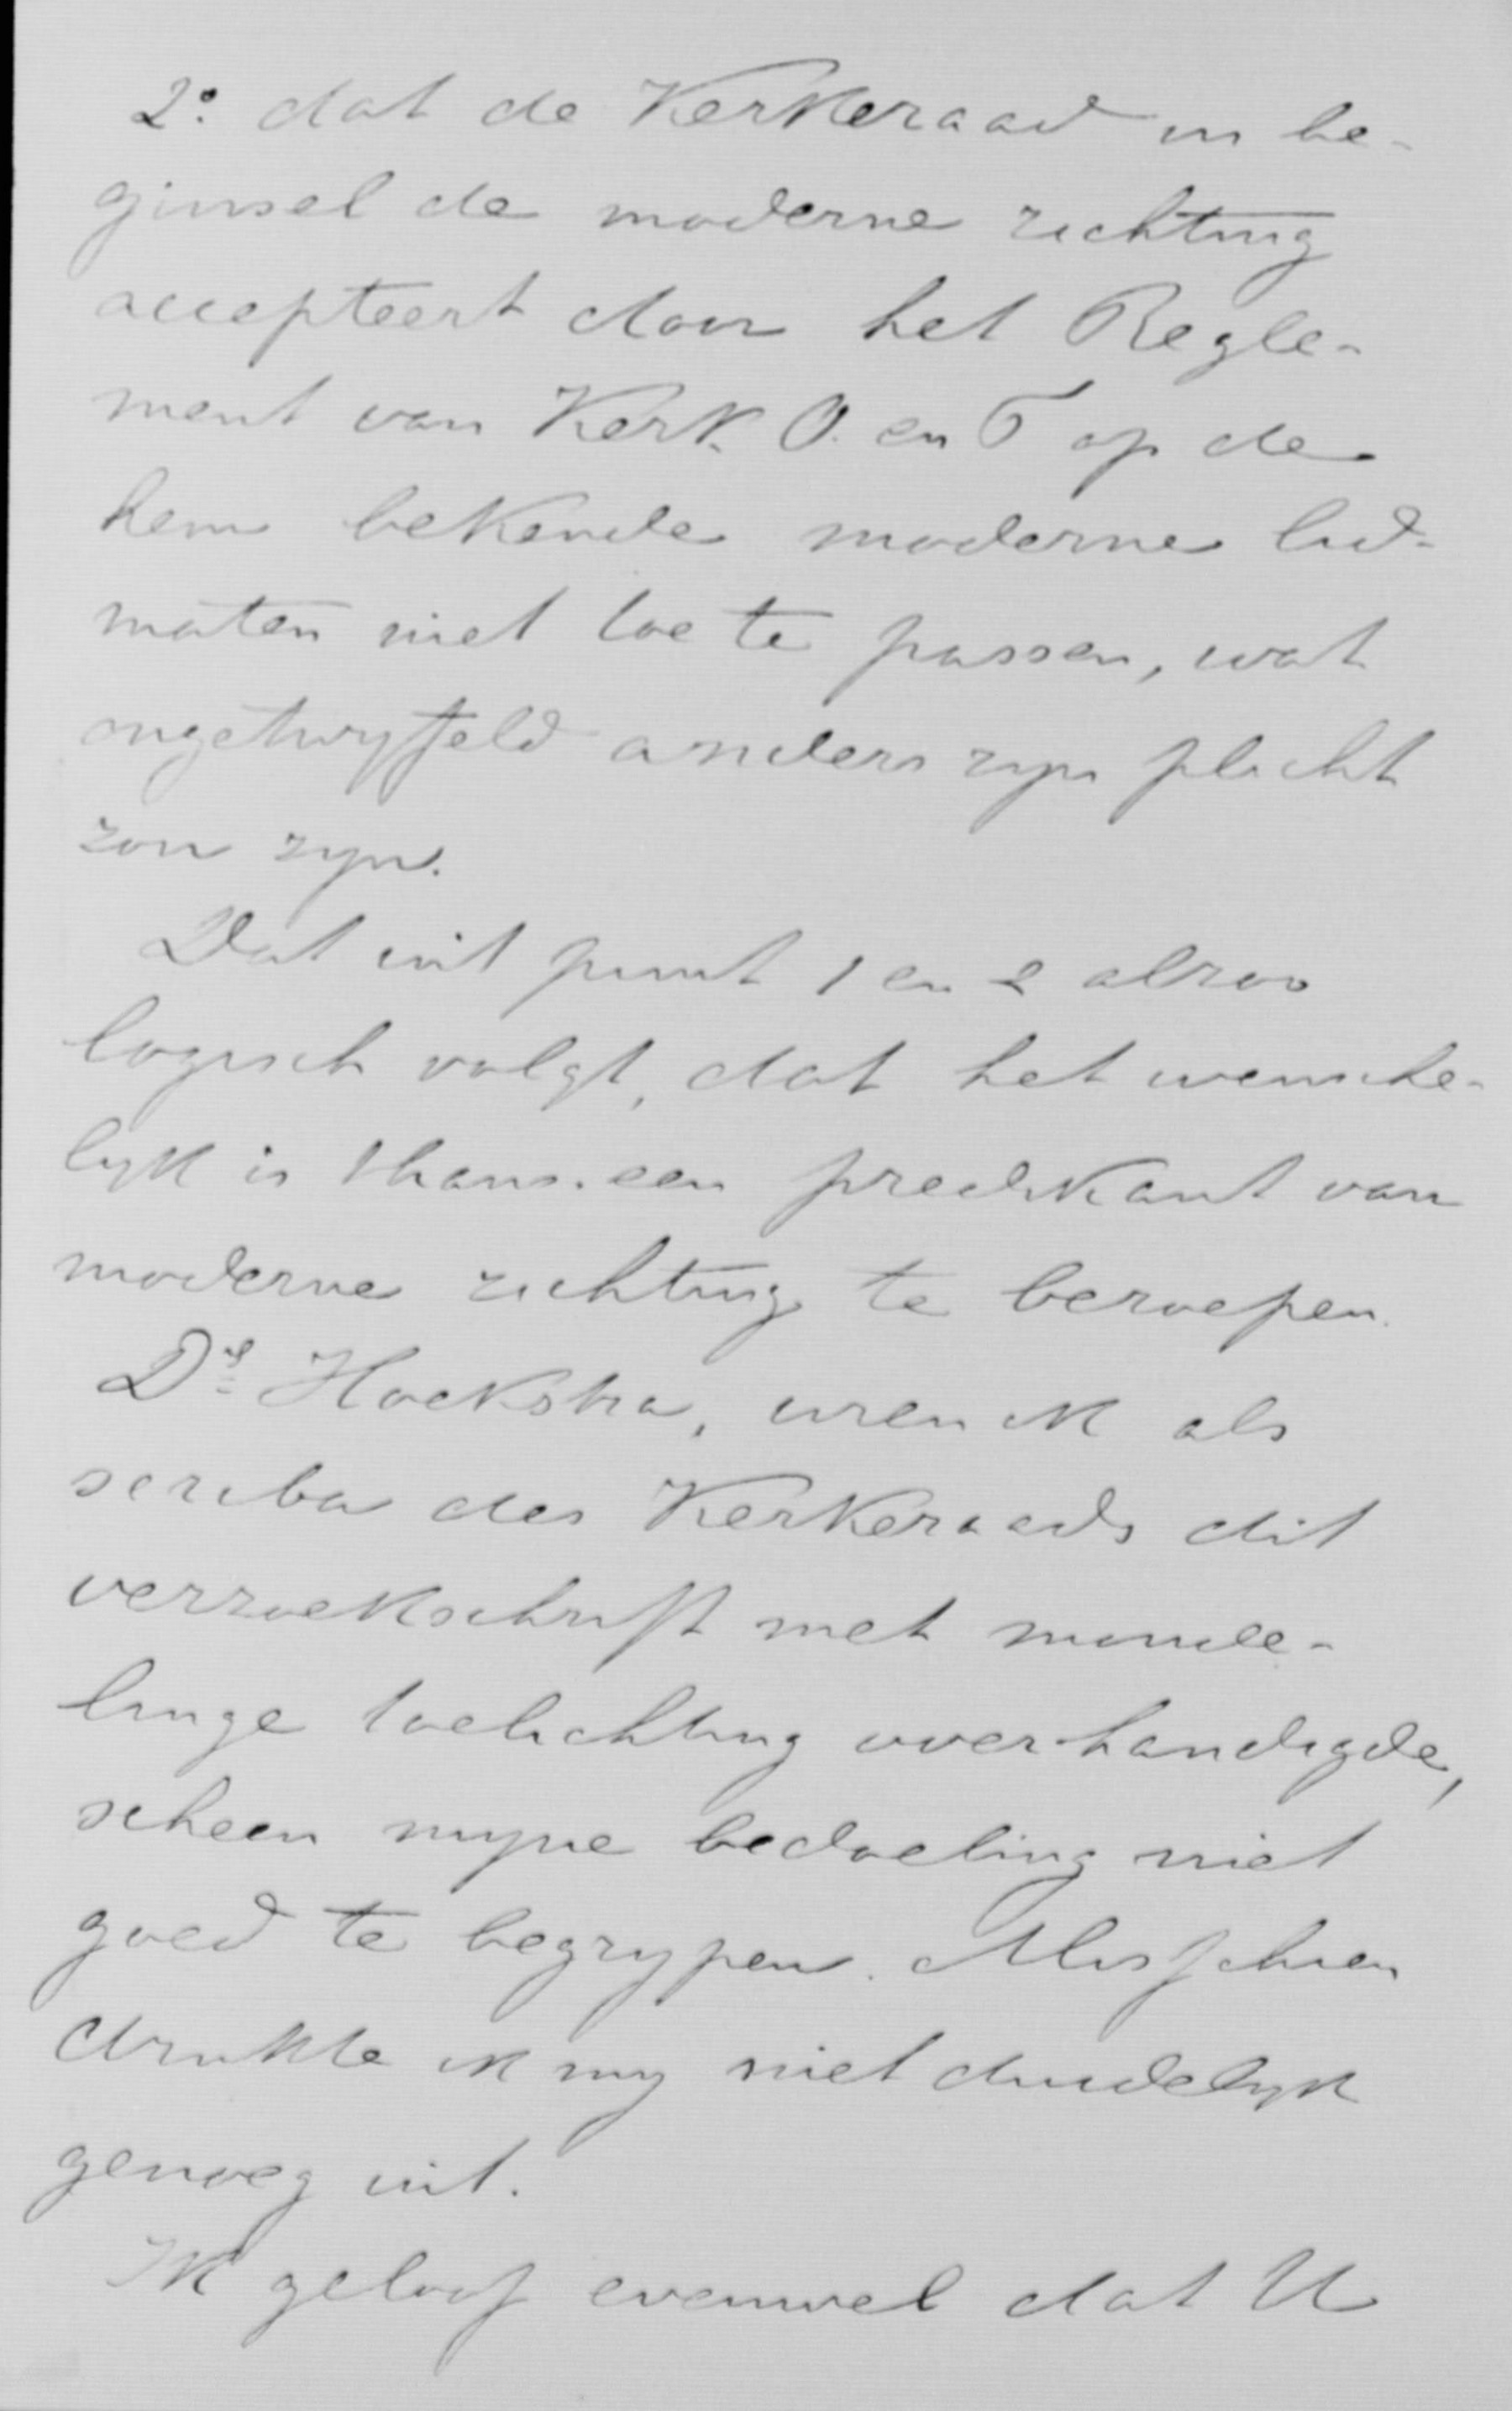 2º. dat de Kerkeraad in be-
ginsel de moderne richting
accepteert door het Regle-
ment van Kerk. O. en T op de
hem bekende moderne lid-
maten niet toe te passen, wat
ongetwyfeld anders zyn plicht
zou zyn.
Dat uit punt 1 en 2 alzoo
logisch volgt, dat het wensche-
lyk is thans een predikant van
moderne richting te beroepen.
Ds Hoekstra, wien ik als
scriba des Kerkeraads dit
verzoekschrift met monde-
linge toelichting overhandigde,
scheen myne bedoeling niet
goed te begrypen. Misschien
drukte ik my niet duidelyk
genoeg uit.
Ik geloof evenwel dat U